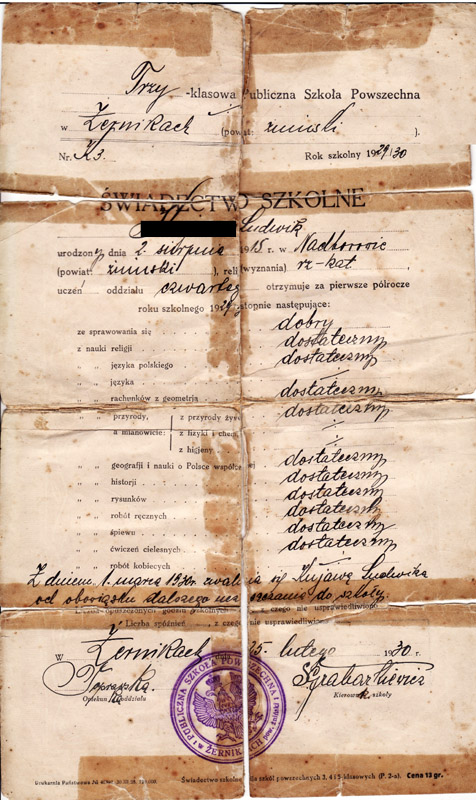 Trzy -klasowa Publiczna Szkoła Powszechna
w Żernikach (powiat: żniński ).
Nr. K3. Rok szkolny 1929/30
ŚWIADECTWO SZKOLNE
Ludwik
urodzony dnia 2. sierpnia 1915 r. w Nadborowie
(powiat: żniński ), reli (wyznania) rz-kat
uczeń oddziału czwartego otrzymuje za pierwsze półrocze
roku szkolnego 1929/ stopnie następujące:
ze sprawowania się dobry
z nauki religji dostateczny
„ „ języka polskiego dostateczny
„ „ języka
„ „ rachunków z geometrją dostateczny
„ „ przyrody, z przyrody żywej dostateczny
a mianowicie: z fizyki i chem.
z higjeny
„ „ geografji i nauki o Polsce współczesnej dostateczny
„ „ historji dostateczny
„ „ rysunków dostateczny
„ „ robót ręcznych dostateczny
„ „ śpiewu dostateczny
„ „ ćwiczeń cielesnych dostateczny
robót kobiecych
Z dniem 1. marca 1930r. zwalnia się Kujawę Ludwika
od obowiązku dalszego uczęszczania do szkoły
Liczba opuszczonych godzin szkolnych , z czego nie usprawiedliwiono
Liczba spóźnień , z czego nie usprawiedliwiono
W Żernikach 25. lutego 1930
S. Grabarkiewicz
Opiekun oddziału Kierownik szkoły
PUBLICZNA SZKOŁA POWSZECHNA w ŻERNIKACH
Drukarnia Państwowa
Świadectwo szkolne dla szkół powszechnych 3, 4 i 5-klasowych (P. 2-a). Cena 13 gr.